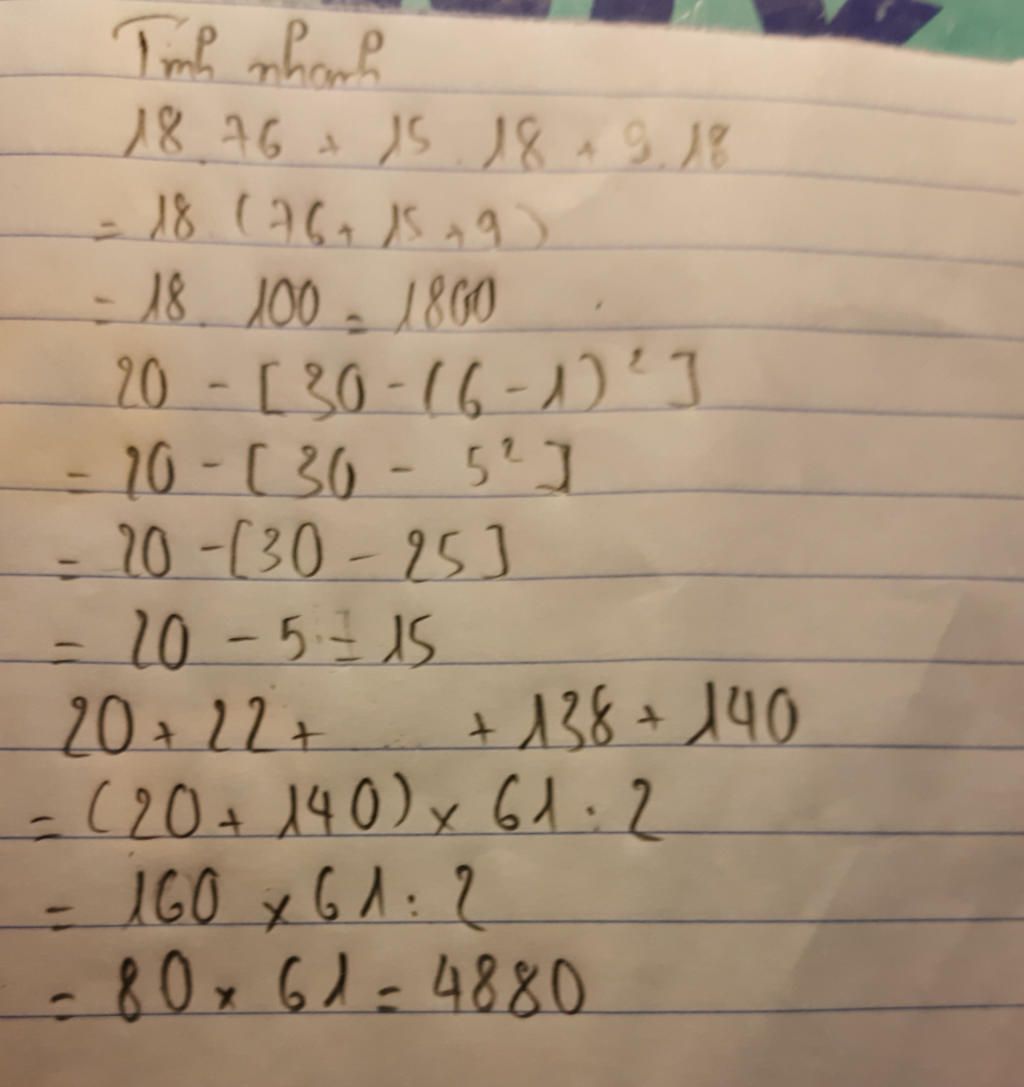 Tính nhanh
18.76 + 15.18 + 9.18
= 18.(76+15+9)
= 18.100 = 1800
20 - [30-(6-1)²]
= 20 - [30 - 5²]
= 20 -[30 - 25]
= 20 - 5 = 15
20 + 22 + ..... + 138 + 140
= (20 + 140) x 61 : 2
= 160 x 61 : 2
= 80 x 61 = 4880